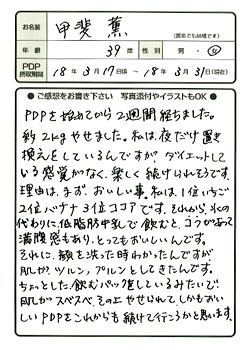 お名前 甲斐 薫 (匿名でも結構です)
年齢 39歳 性別 男・女
PDP摂取期間 18年3月17日頃〜18年3月31日(現在)
●ご感想をお書き下さい 写真添付やイラストもOK●
PDPを始めてから2週間経ちました。
約2kgやせました。私は、夜だけ置き
換えをしているんですが、ダイエットして
いる感覚がなく、楽しく続けられそうです。
理由は、まず、おいしい事。私は、1位いちご
2位バナナ3位ココアです。それから、水の
代わりに、低脂肪牛乳で飲むと、コクがあって
満腹感もあり、とってもおいしいんです。
それに、顔を洗った時わかったんですが
肌が、ツルン、プルンとしてきたんです。
ちょっとした、飲むパックをしているみたいで!
肌がスベスベ、その上やせられて、しかもおいし
いPDPをこれからも続けて行こうかと思います。